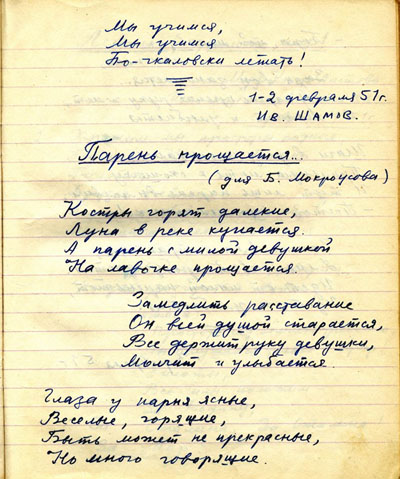 Мы учимся,
Мы учимся
По-чкаловски летать!
1-2 февраля 51 г.
Ив. Шамов.
Парень прощается..
(для Б. Мокроусова)
Костры горят далекие,
Луна в реке купается.
А парень с милой девушкой
На лавочке прощается.
Замедлить расставание
Он всей душой старается,
Все держит руку девушки,
Молчит и улыбается.
Глаза у парня ясные,
Веселые, горящие,
Быть может не прекрасные,
Но много говорящие.